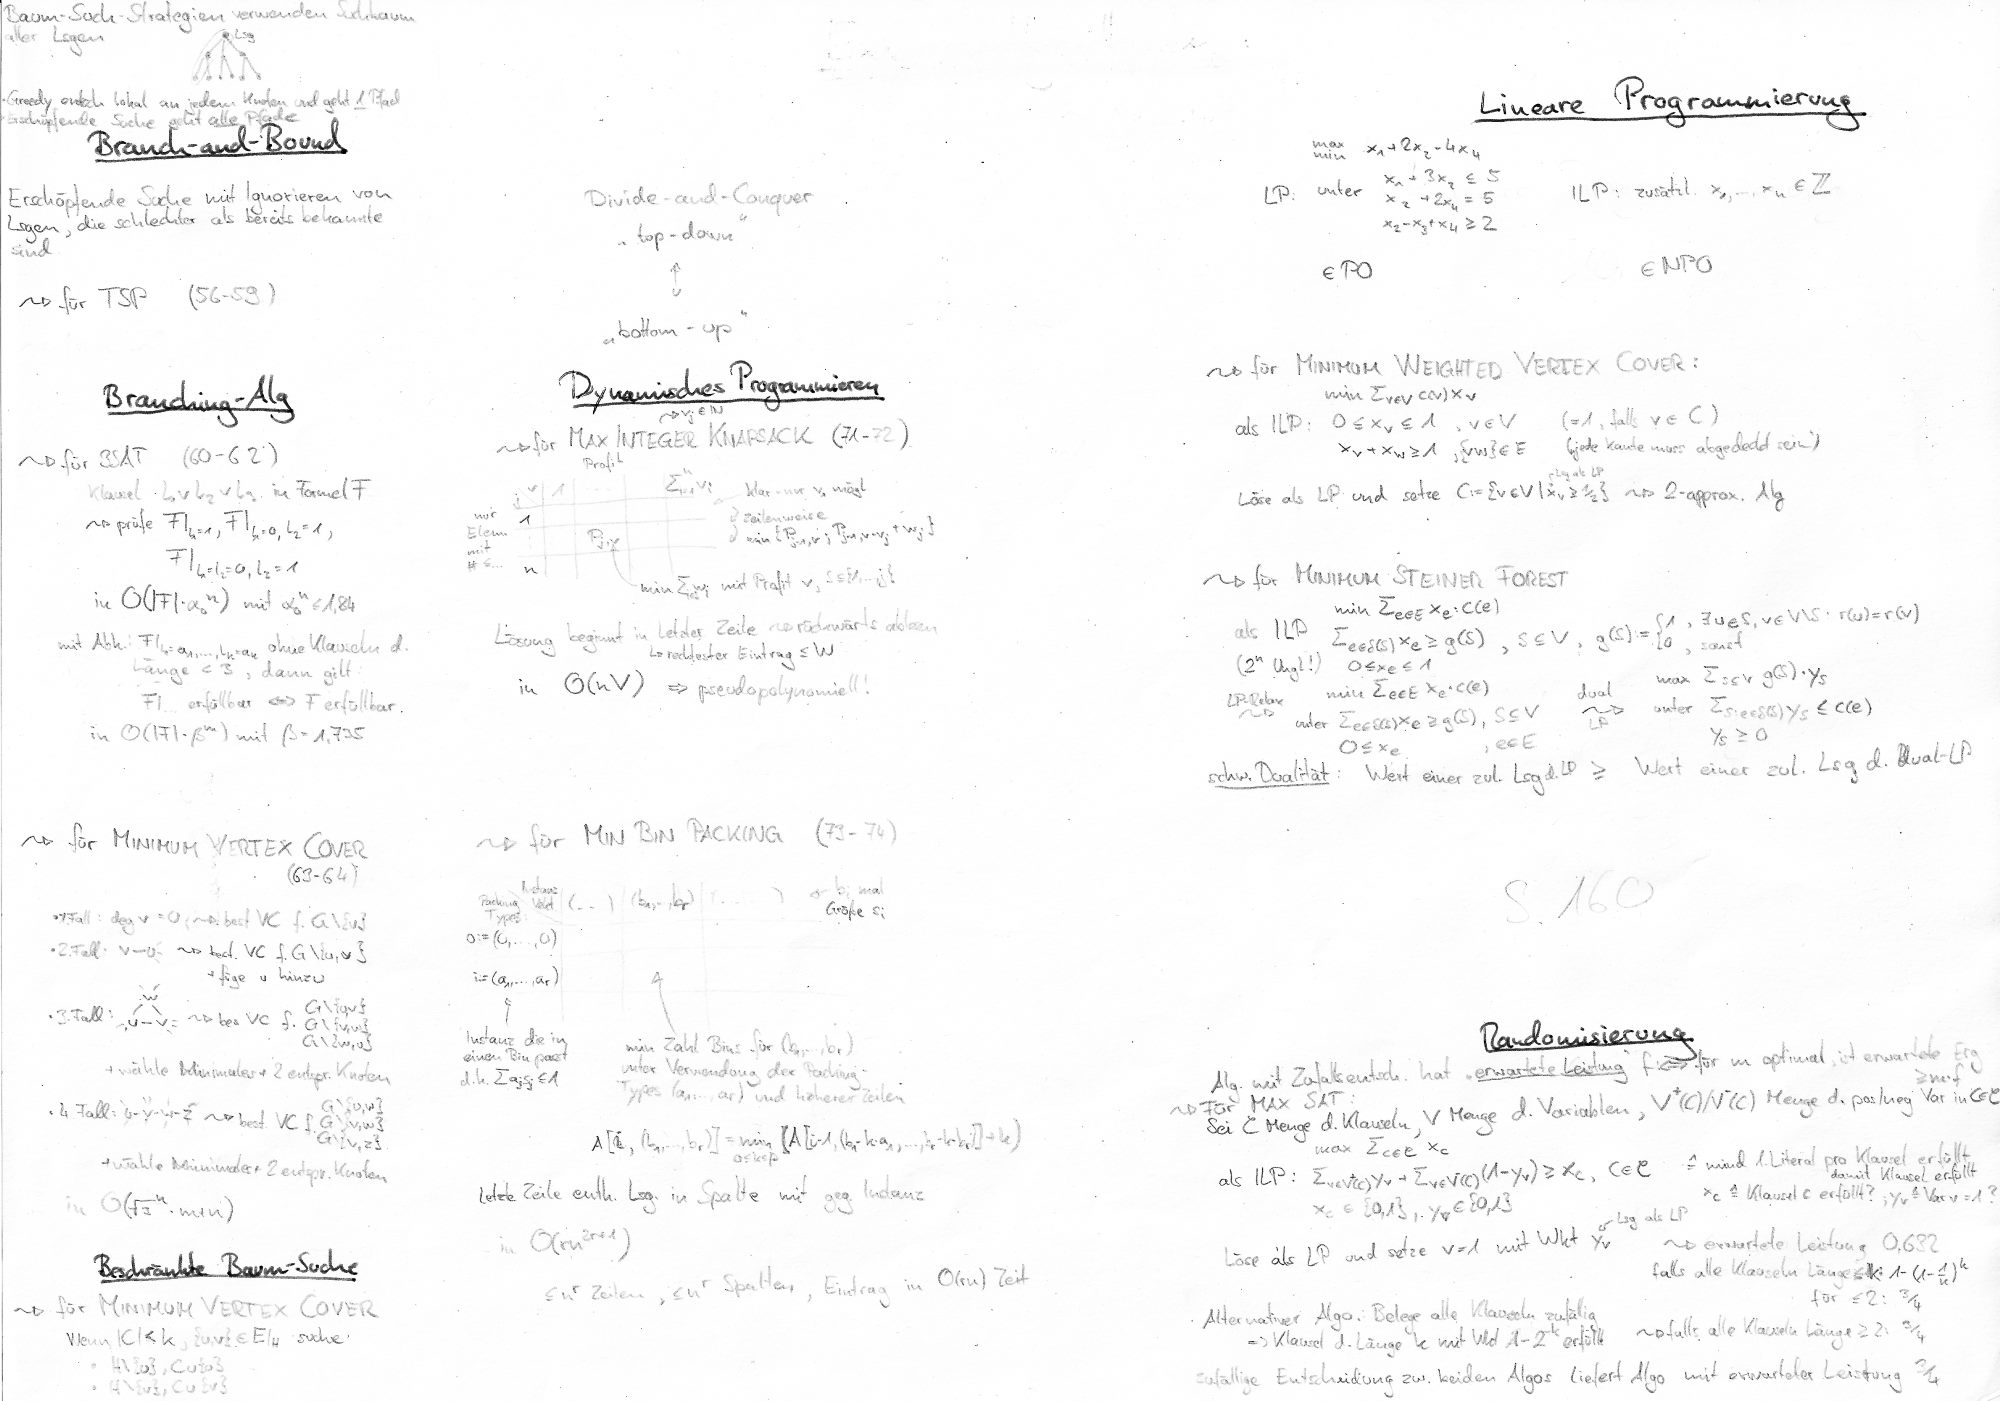 Baum-Such-Strategien verwenden Suchbaum
aller Lsgen
Lsg
- Greedy entsch. lokal an jedem Knoten und geht 1 Pfad
- Erschöpfende Suche geht alle Pfade
Branch-and-Bound
Erschöpfende Suche mit Ignorieren von
Lsgen, die schlechter als bereits bekannte
sind
~> für TSP (56-59)
Branching-Alg
~> für 3SAT (60-62)
Klausel L₁ ∨ L₂ ∨ L₃ in Formel F
~> prüfe F|L₁=1, F|L₁=0, L₂=1,
F|L₁=L₂=0, L₃=1
in O(|F|·α₀ⁿ) mit α₀ ≤ 1,84
mit Abk.: F|L₁=a₁,...,Lₖ=aₖ ohne Klauseln d.
Länge < 3, dann gilt:
F|... erfüllbar <=> F erfüllbar.
in O(|F|·βⁿ) mit β = 1,735
~> für MINIMUM VERTEX COVER
(63-64)
• 1. Fall: deg v = 0, ~> best VC f. G\{v}
• 2. Fall: v—u ~> best. VC f. G\{u,v}
+ füge u hinzu
• 3. Fall: u—v w ~> bes VC f. G\{u,v}
G\{v,w}
G\{w,u}
+ wähle Minimales + 2 entspr. Knoten
• 4. Fall: u-v-w-z ~> best. VC f. G\{u,w}
G\{v,w}
G\{v,z}
+ wähle Minimales + 2 entspr. Knoten
in O(√3ⁿ·m+n)
Beschränkte Baum-Suche
~> für MINIMUM VERTEX COVER
Wenn |C| < k, {u,v} ∈ E/H suche
• H\{u}, C∪{u}
• H\{v}, C∪{v}
Divide-and-Conquer
„top-down"
↕
„bottom-up"
Dynamisches Programmieren
~> vⱼ ∈ N
~> für MAX INTEGER KNAPSACK (71-72)
Profit
j v 1 ... Σⁿᵢ₌₁ vᵢ
klar - nur v₁ mögl
1
zeilenweise
min {Pⱼ₋₁,ᵥ; Pⱼ₋₁,ᵥ₋ᵥⱼ + wⱼ}
nur
Elem
mit
# ≤...
Pⱼ,ᵥ
n
min Σ wⱼ mit Profit v, S⊆{1...j}
Lösung beginnt in letzter Zeile ~> rückwärts ablesen
↳ rechtester Eintrag ≤ W
in O(nV) => pseudopolynomiell!
~> für MIN BIN PACKING (73-74)
Instanz
Packing
Types
(...) (b₁,...,bᵣ) (... )
bᵢ mal
Größe sᵢ
0:=(0,...,0)
i:=(a₁,...,aᵣ)
Instanz die in
einen Bin passt
d.h. Σaⱼsⱼ ≤ 1
min Zahl Bins für (b₁,...,bᵣ)
unter Verwendung der Packing-
Types (a₁,...,aᵣ) und höherer Zeilen
A[i, (b₁,...,bᵣ)] = min 0≤k≤p {A[i-1,(b₁-k·a₁,...,bᵣ-k·aᵣ)]+k}
letzte Zeile enth. Lsg. in Spalte mit geg. Instanz
in O(rn²ʳ⁺¹)
≤nʳ Zeilen, ≤nʳ Spalten, Eintrag in O(rn) Zeit
Lineare Programmierung
max
min x₁+2x₂-4x₄
LP: unter x₁ + 3x₂ ≤ 5
x₂ + 2x₄ = 5
x₂-x₃+x₄ ≥ 2
ILP: zusätzl. x₁,...,xₙ ∈ ℤ
∈ PO
∈ NPO
~> für MINIMUM WEIGHTED VERTEX COVER:
min Σᵥ∈V c(v)xᵥ
als ILP: 0 ≤ xᵥ ≤ 1 , v ∈ V (=1, falls v ∈ C)
xᵥ + x_w ≥ 1 , {v,w} ∈ E („jede Kante muss abgedeckt sein")
Lsg als LP
Löse als LP und setze C:={v∈V | xᵥ ≥ ½} ~> 2-approx. Alg
~> für MINIMUM STEINER FOREST
min Σe∈E xₑ·c(e)
als ILP Σe∈δ(S) xₑ ≥ g(S) , S ⊆ V , g(S):= {1, ∃u∈S, v∈V\S: r(u)=r(v)
0, sonst
(2ⁿ Ungl!) 0 ≤ xₑ ≤ 1
LP-Relax
~> min Σe∈E xₑ·c(e)
unter Σe∈δ(S) xₑ ≥ g(S), S ⊆ V
0 ≤ xₑ , e∈E
dual
~>
LP
max ΣS⊆V g(S)·y_S
unter ΣS:e∈δ(S) y_S ≤ c(e)
y_S ≥ 0
schw. Dualität: Wert einer zul. Lsg d. LP ≥ Wert einer zul. Lsg d. Dual-LP
S. 160
Randomisierung
Alg. mit Zufallsentsch. hat „erwartete Leistung" f <=> für m optimal, ist erwartete Erg
≥ m·f
~> Für MAX SAT:
Sei C Menge d. Klauseln, V Menge d. Variablen, V⁺(C)/V⁻(C) Menge d. pos/neg Var in C∈C
max Σc∈C x_c
als ILP: Σv∈V⁺(C) yᵥ + Σv∈V⁻(C) (1-yᵥ) ≥ x_c, C∈C ≙ mind 1. Literal pro Klausel erfüllt
damit Klausel erfüllt
x_c ∈ {0,1}, yᵥ ∈ {0,1} x_c ≙ Klausel c erfüllt?, yᵥ ≙ Var v = 1?
Lsg als LP
Löse als LP und setze v=1 mit Wkt yᵥ ~> erwartete Leistung 0,632
falls alle Klauseln Länge ≤ k: 1-(1-1/k)ᵏ
für ≤2: 3/4
Alternativer Algo.: Belege alle Klauseln zufällig
=> Klausel d. Länge k mit Wkt 1-2⁻ᵏ erfüllt ~> falls alle Klauseln Länge ≥ 2: 3/4
zufällige Entscheidung zw. beiden Algos liefert Algo mit erwarteter Leistung 3/4